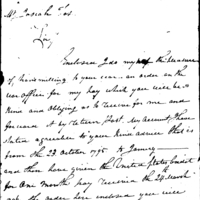 Mr Josiah Fox
Sir
Enclosed I do my the Pleasure
of transmitting to your care - an order on the
war office for my pay which you will be so
kind and obliging as to receive for me and
forward it by return Post. My account, I have
stated agreeable to your kind advice that is
from the 23 October 1795 to January
and then have given the United States Credit
for one month pay received the 24
the order here enclosed you will